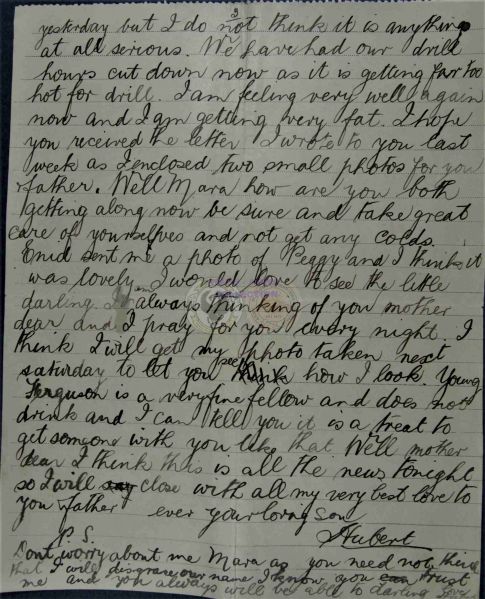 3
yesterday but I do not think it is anything
at all serious. We have had our drill
hours cut down now as it is getting far too
hot for drill. I am feeling very well again
now and I am getting very fat. I hope
you received the letter I wrote to you last
week as I enclosed two small photos for you
& father. Well Mara how are you both
getting along now be sure and take great
care of yourselves and not get any colds.
Enid sent me a photo of Peggy and I thinks it
was lovely I would love to see the little
darling I am always thinking of you mother
dear and I pray for you every night I
think I will get my photo taken next
saturday to let you see how I look. Young
Ferguson is a very fine fellow and does not
drink and I can tell you it is a treat to
get someone with you like that. Well mother
dear I think this is all the news tonight
so I will close with all my very best love to
you & father ever your loving Son
Hubert
P.S.
Dont worry about me Mara as you need not think
that I will disgrace our name I know you can trust
me and you always will be able to darling